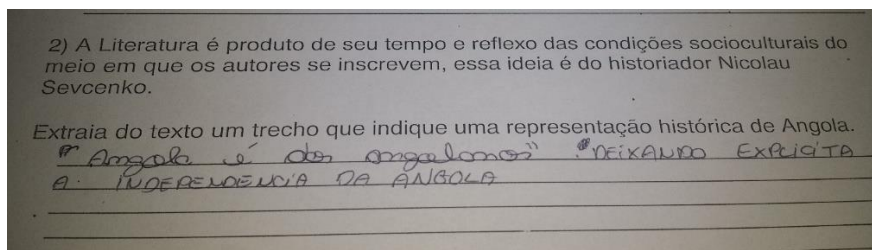 2) A Literatura é produto de seu tempo e reflexo das condições socioculturais do
meio em que os autores se inscrevem, essa ideia é do historiador Nicolau
Sevcenko.
Extraia do texto um trecho que indique uma representação histórica de Angola.
"Angola é dos angolanos". DEIXANDO EXPLICITA
A INDEPENDENCIA DA ANGOLA